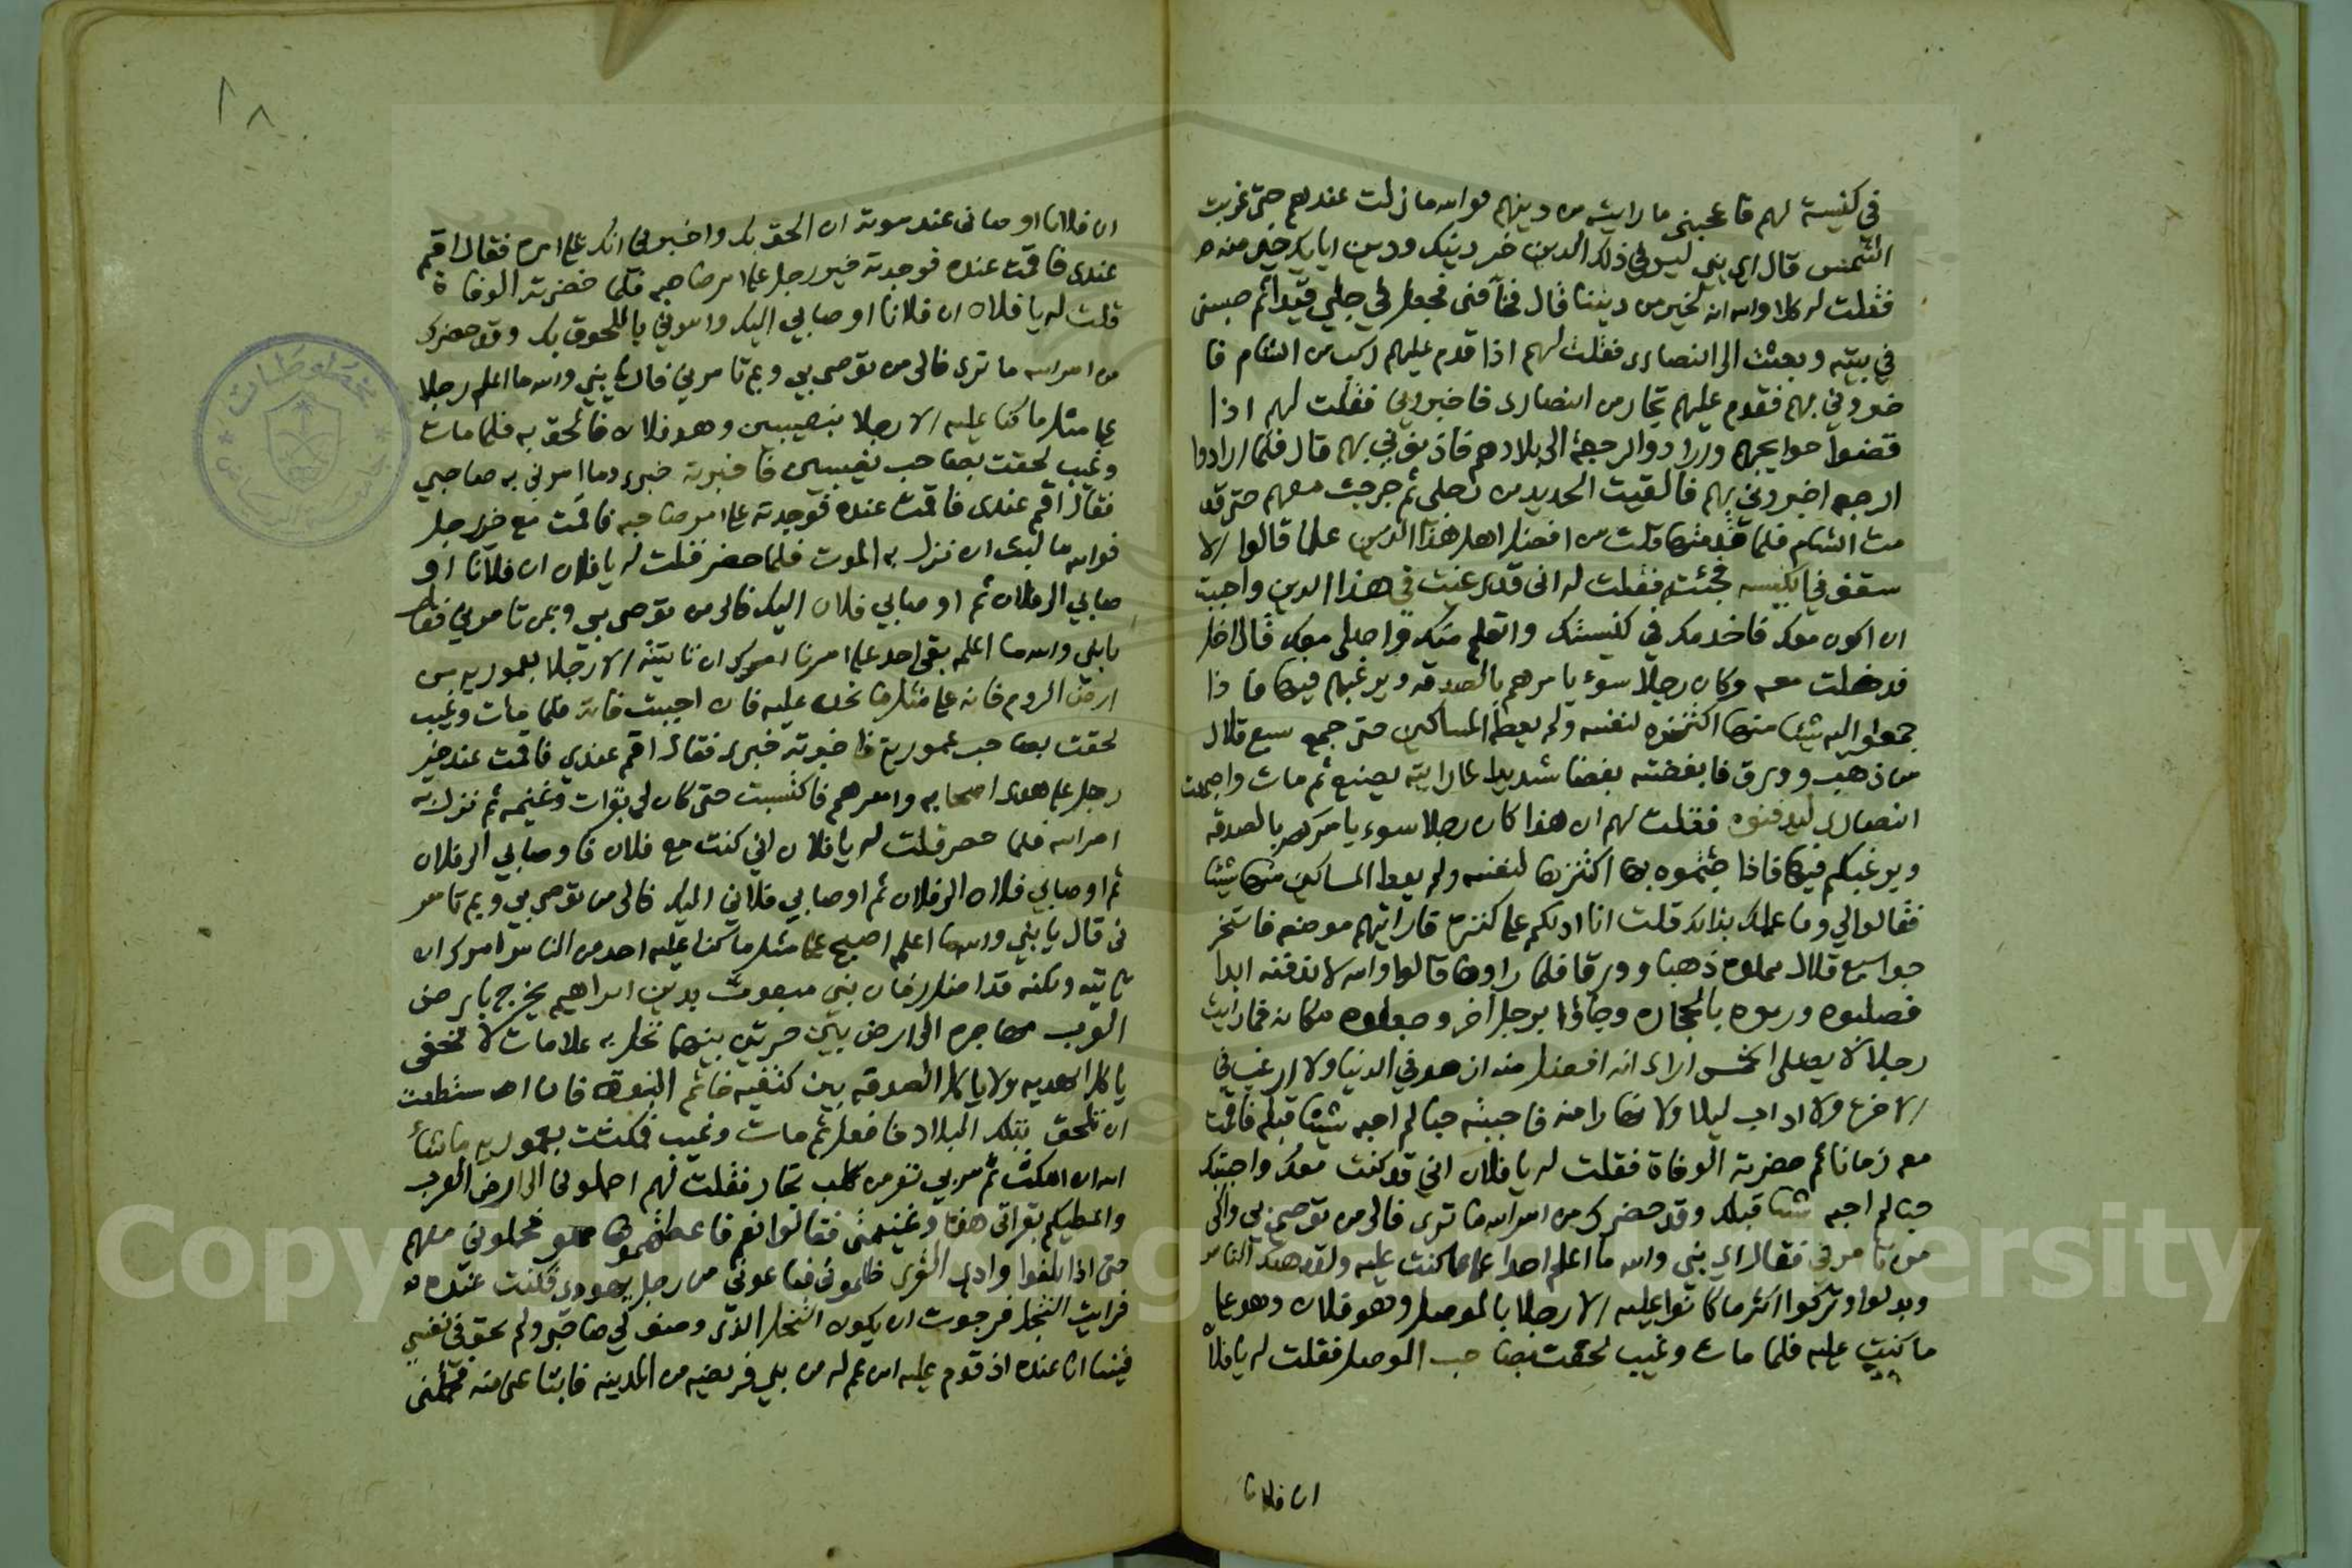 في كنيسة لهم فاعجبني ما رايت من دينهم فوالله ما زلت عندهم حتى غربت
الشمس قال اي بني ليس في ذلك الدين خير دينك ودين ابايك خير منه
فقلت له كلا والله انه لخير من ديننا قال فخافني فجعل في رجلي قيدا ثم حبسني
في بيته وبعثت الى النصارى فقلت لهم اذا قدم عليهم ركب من الشام فا
خبروني بهم فقدم عليهم تجار من النصارى فاخبروني فقلت لهم اذا
قضوا حوايجهم وارادوا الرجعة الى بلادهم فاذنوني بهم قال فلما ارادوا
الرجعه اخبروني بهم فالقيت الحديد من رجلي ثم خرجت معهم حتى قد
مت الشام فلما قدمتها قلت من افضل اهل هذا الدين علما قالوا الا
سقف في الكنيسه فجئته فقلت له اني قد رغبت في هذا الدين واحببت
ان اكون معك فاخدمك في كنيستك واتعلم منك واصلي معك قال ادخل
فدخلت معه وكان رجلا سوء يامرهم بالصدقه ويرغبهم فيها فاذا
جمعوا اليه شيئا منها اكتنزه لنفسه ولم يعط المساكين حتى جمع سبع قلال
من ذهب وورق فابغضته بغضا شديدا لما رايته يصنع ثم مات واجتمعت
النصارى ليدفنوه فقلت لهم ان هذا كان رجلا سوء يامركم بالصدقه
ويرغبكم فيها فاذا جئتموه بها اكتنزها لنفسه ولم يعط المساكين منها شيئا
فقالوا لي وما علمك بذلك قلت انا ادلكم على كنزه فاراتهم موضعه فاستخر
جوا سبع قلال مملوه ذهبا وورقا فلما راوها قالوا والله لا ندفنه ابدا
فصلبوه ورموه بالحجاره وجاؤا برجل آخر وجعلوه مكانه فما رايت
رجلا لا يصلي الخمس اراى انه افضل منه ازهد في الدنيا ولا ارغب في
الاخرة ولا اداب ليلا ولا نهارا منه فاحببته حبا لم احبه شيئا قبله فاقمت
معه زمانا ثم حضرته الوفاة فقلت له يا فلان اني قد كنت معك واحببتك
حبا لم احبه شيئا قبلك وقد حضرك من امر الله ما ترى فالى من توصي بي والى
من تامرني فقال اي بني والله ما اعلم احدا على ما كنت عليه ولقد هلك الناس
وبدلوا وتركوا اكثر ما كانوا عليه الا رجلا بالموصل وهو فلان وهو على
ما كنت عليه فلما مات وغيب لحقت بصاحب الموصل فقلت له يا فلا
ان فلانا
١٨
ان فلانا اوصاني عند موته ان الحق بك واخبرني انك على امره فقال اقم
عندي فاقمت عنده فوجدته خير رجل على امر صاحبه فلما حضرته الوفاة
قلت له يا فلان ان فلانا اوصابي اليك وامرني باللحوق بك وقد حضرك
من امر الله ما ترى فالى من توصي بي وبم تامرني قال يا بني والله ما اعلم رجلا
على مثل ما كنا عليه الا رجلا بنصيبين وهو فلان فالحق به فلما مات
وغيب لحقت بصاحب نصيبين فاخبرته خبري وما امرني به صاحبي
فقال اقم عندي فاقمت عنده فوجدته على امر صاحبه فاقمت مع خير رجل
فوالله ما لبث ان نزل به الموت فلما حضر قلت له يا فلان ان فلانا او
صابي الى فلان ثم اوصابي فلان اليك فالى من توصي بي وبمن تامرني فقال
يا بني والله ما اعلمه بقي احد على امرنا امرك ان تاتيه الا رجلا بعموريه من
ارض الروم فانه على مثل ما نحن عليه فان احببت فاته فلما مات وغيب
لحقت بصاحب عمورية فاخبرته خبري فقال اقم عندي فاقمت عند خير
رجل على هدى اصحابه وامرهم فاكتسبت حتى كان لي بقرات وغنيمه ثم نزل به
امر الله فلما حضر قلت له يا فلان اني كنت مع فلان فاوصابي الى فلان
ثم اوصابي فلان الى فلان ثم اوصابي فلان اليك فالى من توصي بي وبم تامر
ني قال يا بني والله ما اعلم اصبح على مثل ما كنا عليه احد من الناس امرك ان
تاتيه ولكنه قد اظلك زمان نبي مبعوث بدين ابراهيم يخرج بارض
العرب مهاجره الى ارض بين حرتين بينهما نخل به علامات لا تخفى
ياكل الهديه ولا ياكل الصدقه بين كتفيه خاتم النبوة فان استطعت
ان تلحق بتلك البلاد فافعل ثم مات وغيب فمكثت بعموريه ما شاء
الله ان امكث ثم مر بي نفر من كلب تجار فقلت لهم احملوني الى ارض العرب
واعطيكم بقراتي هذه وغنيمتي فقالوا نعم فاعطيتهموها وحملوني معهم
حتى اذا بلغوا وادي القرى ظلموني فباعوني من رجل يهودي فكنت عنده
فرايت النخل فرجوت ان يكون النخل الذي وصف لي صاحبي ولم يحق في نفسي
فبينا انا عنده اذ قدم عليه ابن عم له من بني قريضه من المدينه فابتاعني منه فحملني